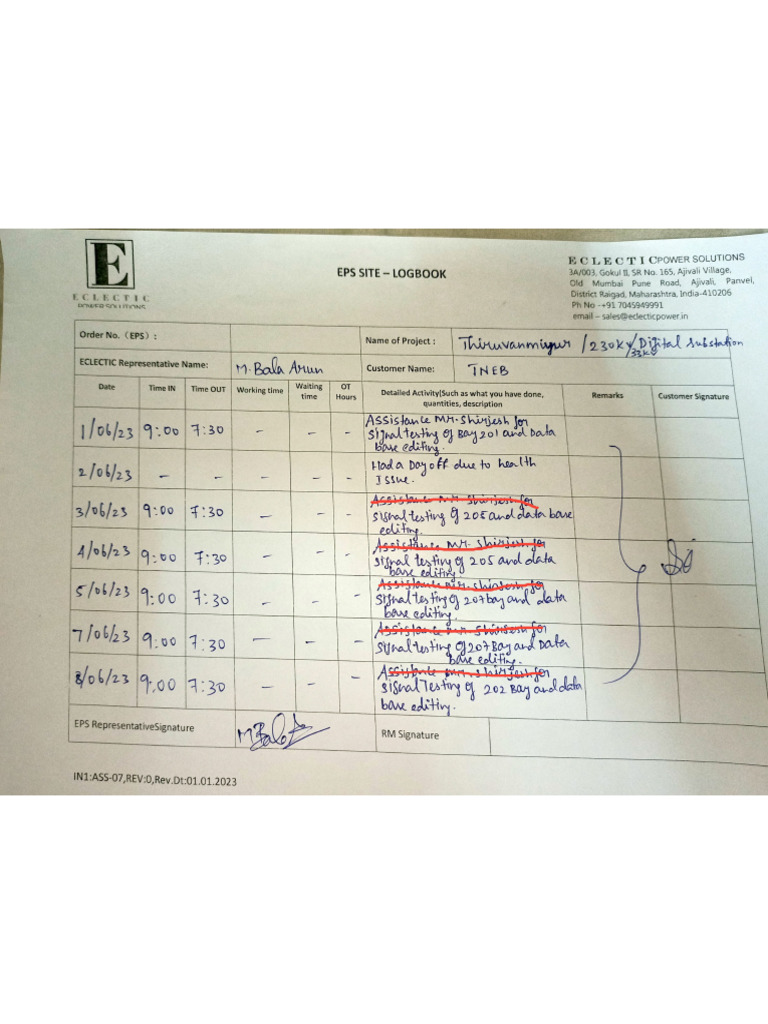 E
ECLECTIC
POWER SOLUTIONS
EPS SITE – LOGBOOK
ECLECTIC POWER SOLUTIONS
3A/003, Gokul II, SR No. 165, Ajivali Village,
Old Mumbai Pune Road, Ajivali, Panvel,
District Raigad, Maharashtra, India-410206
Ph No -+91 7045949991
email – sales@eclecticpower.in
Order No. (EPS) :
Name of Project : Thiruvanmiyur /230KV/33KV Digital Substation
ECLECTIC Representative Name: M. Bala Arun Customer Name: TNEB
Date Time IN Time OUT Working time Waiting time OT Hours Detailed Activity(Such as what you have done, quantities, description Remarks Customer Signature
1/06/23 9:00 7:30 – – – Assistance Mr. Shirjesh for
signal testing of Bay 201 and Data
base editing.
2/06/23 – – – – – Had a Day off due to health
Issue.
3/06/23 9:00 7:30 – – – Assistance Mr Shirjesh for
signal testing of 205 and data base
editing.
4/06/23 9:00 7:30 – – – Assistance Mr. Shirjesh for
signal testing of 205 and data
base editing.
5/06/23 9:00 7:30 – – – Assistance Mr. Shirjesh for
signal testing of 207 bay and data
base editing.
7/06/23 9:00 7:30 – – – Assistance Mr. Shirjesh for
signal testing of 207 Bay and Data
base editing.
8/06/23 9.00 7:30 – – – Assistance Mr. Shirjesh for
signal Testing of 202 Bay and data
base editing.
EPS RepresentativeSignature M Bala RM Signature
IN1:ASS-07,REV:0,Rev.Dt:01.01.2023